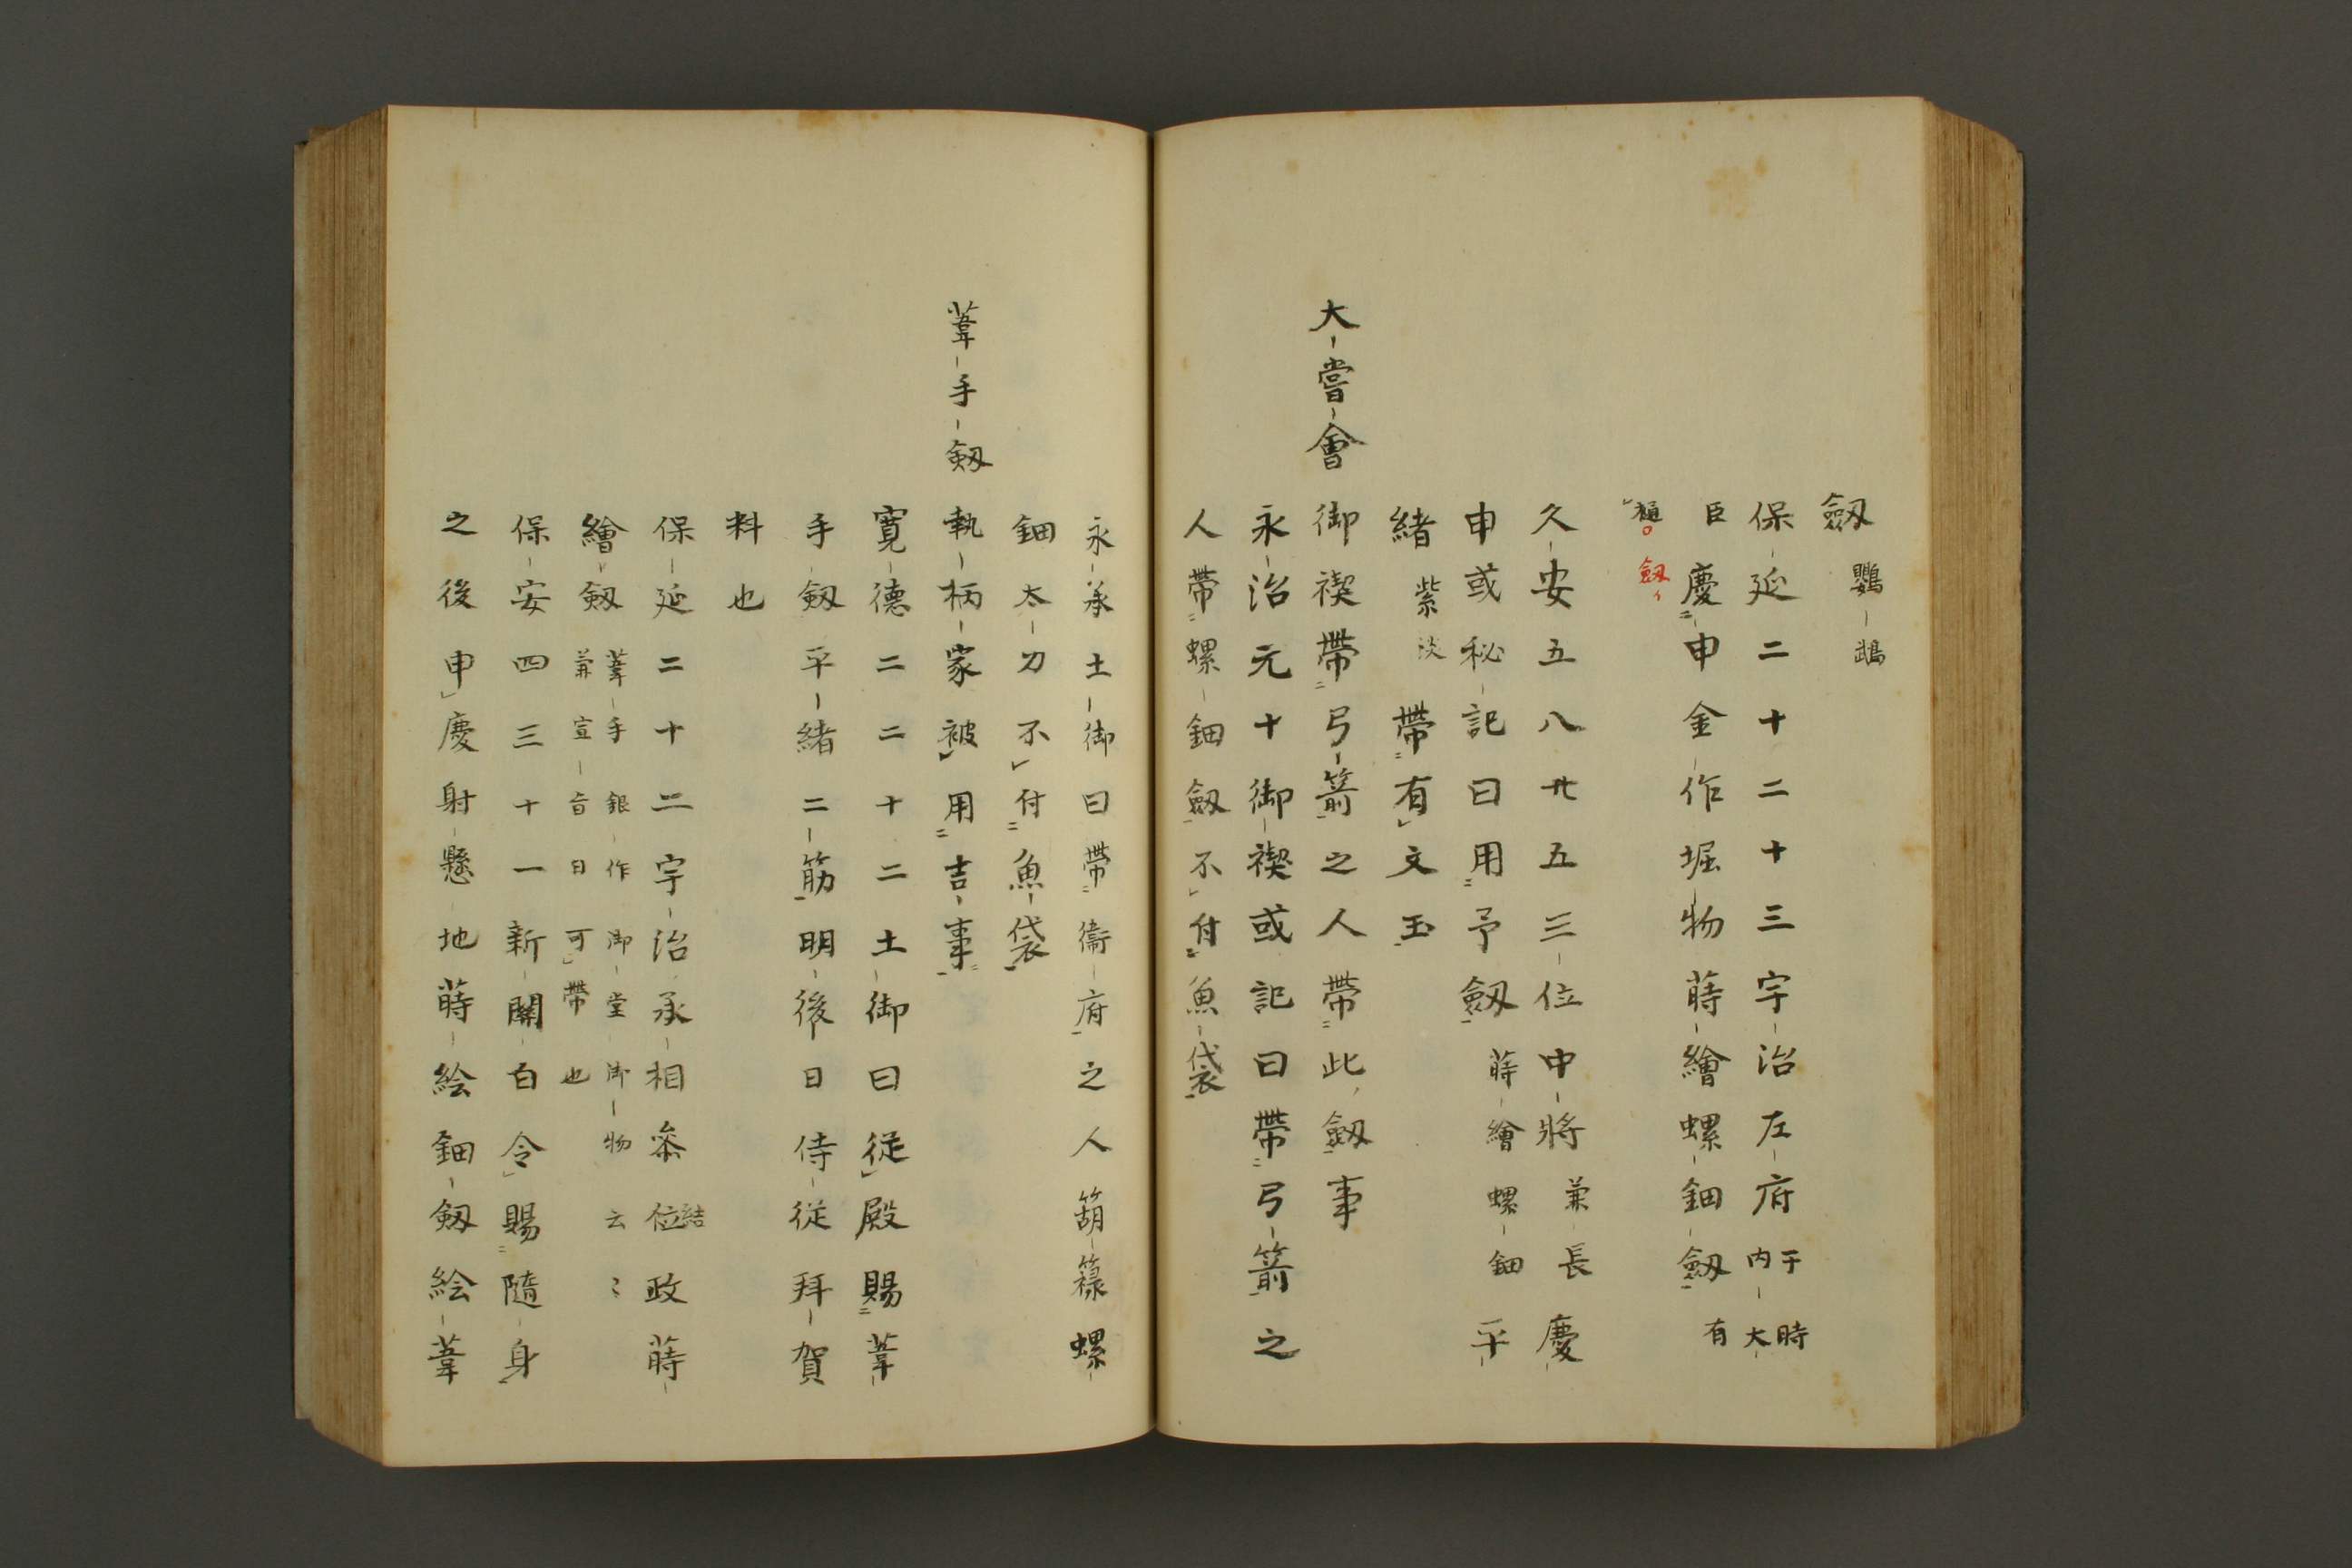 劔 鸚鵡
保延二十二十三宇治左府 于時内大
臣慶申金作堀物蒔繪螺鈿劔 有
樋 劔イ
久安五八廿五三位中將 兼長 慶
申或秘記曰用予劔 蒔繪螺鈿 平
緒 紫淡 帶有文玉
大嘗會 御禊帶弓箭之人帶此劔事
永治元十御禊或記曰帶弓箭之
人帶螺鈿劔不付魚袋
永承土御曰帶衞府之人箶籙螺
鈿太刀不付魚袋
葦手劔 執柄家被用吉事
寛德二二十二土御曰従殿賜葦
手劔平緒二筋明後日侍従拜賀
料也
保延二十二宇治承相叅結政位蒔
繪劔 葦手銀作御堂御物云〻兼宣旨日可帶也
保安四三十一新關白令賜隨身
之後申慶射懸地蒔絵鈿劔絵葦